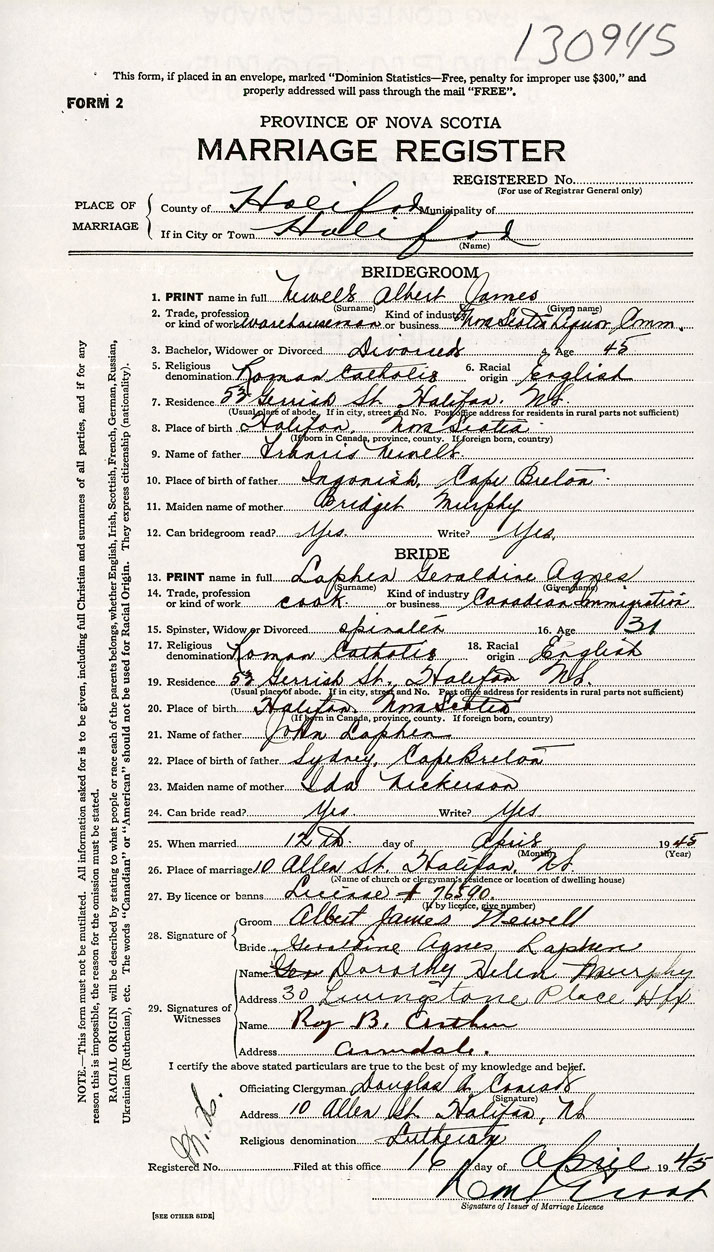 130945
This form, if placed in an envelope, marked "Dominion Statistics—Free, penalty for improper use $300," and
properly addressed will pass through the mail "FREE".
FORM 2
PROVINCE OF NOVA SCOTIA
MARRIAGE REGISTER
REGISTERED No.
(For use of Registrar General only)
PLACE OF MARRIAGE
County of Halifax Municipality of
If in City or Town Halifax
(Name)
BRIDEGROOM
1. PRINT name in full Newell Albert James
(Surname) (Given name)
2. Trade, profession or kind of work warehouseman Kind of industry or business Nova Scotia Liquor Comm.
3. Bachelor, Widower or Divorced Divorced 4. Age 45
5. Religious denomination Roman Catholic 6. Racial origin English
7. Residence 53 Gerrish St. Halifax N.S.
(Usual place of abode. If in city, street and No. Post office address for residents in rural parts not sufficient)
8. Place of birth Halifax, Nova Scotia
(If born in Canada, province, county. If foreign born, country)
9. Name of father Francis Newell
10. Place of birth of father Ingonish, Cape Breton
11. Maiden name of mother Bridget Murphy
12. Can bridegroom read? Yes. Write? Yes.
BRIDE
13. PRINT name in full Laphen Geraldine Agnes
(Surname) (Given name)
14. Trade, profession or kind of work cook Kind of industry or business Canadian Immigration
15. Spinster, Widow or Divorced spinster 16. Age 31
17. Religious denomination Roman Catholic 18. Racial origin English
19. Residence 53 Gerrish St. Halifax N.S.
(Usual place of abode. If in city, street and No. Post office address for residents in rural parts not sufficient)
20. Place of birth Halifax, Nova Scotia
(If born in Canada, province, county. If foreign born, country)
21. Name of father John Laphen
22. Place of birth of father Sydney, Cape Breton
23. Maiden name of mother Ida Nickerson
24. Can bride read? Yes. Write? Yes
25. When married 12th day of April 1945
(Month) (Year)
26. Place of marriage 10 Allen St. Halifax, N.S.
(Name of church or clergyman's residence or location of dwelling house)
27. By licence or banns License # 76590.
(If by licence, give number)
28. Signature of
Groom Albert James Newell
Bride Geraldine Agnes Laphen
29. Signatures of Witnesses
Name Dorothy Helen Murphy
Address 30 Livingstone Place Hfx
Name Roy B.
Address Armdale.
I certify the above stated particulars are true to the best of my knowledge and belief.
Officiating Clergyman Douglas A Conrad
(Signature)
Address 10 Allen St. Halifax, NS
Religious denomination Lutheran
Registered No. Filed at this office 16 day of April 1945
Signature of Issuer of Marriage Licence
[SEE OTHER SIDE]
NOTE.—This form must not be mutilated. All information asked for is to be given, including full Christian and surnames of all parties, and if for any
reason this is impossible, the reason for the omission must be stated.
RACIAL ORIGIN will be described by stating to what people or race each of the parents belongs, whether English, Irish, Scottish, French, German, Russian,
Ukrainian (Ruthenian), etc. The words "Canadian" or "American" should not be used for Racial Origin. They express citizenship (nationality).